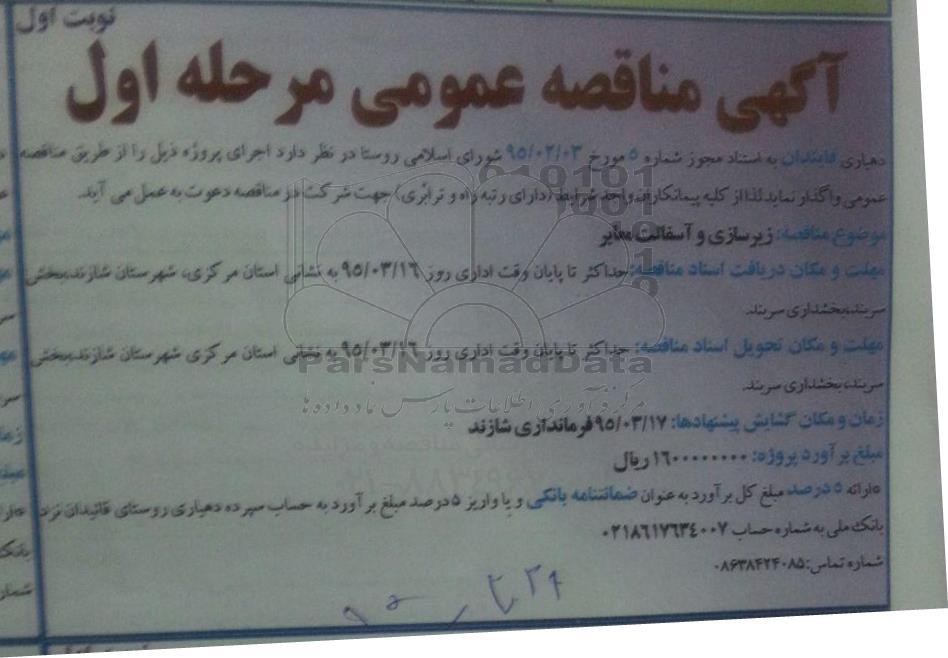 نوبت اول
آگهی مناقصه عمومی مرحله اول
دهیاری قائیدان به استناد مجوز شماره ۵ مورخ ۹۵/۰۲/۰۳ شورای اسلامی روستا در نظر دارد اجرای پروژه ذیل را از طریق مناقصه
عمومی واگذار نماید لذا از کلیه پیمانکاران واجد شرایط (دارای رتبه راه و ترابری) جهت شرکت در مناقصه دعوت به عمل می آید.
موضوع مناقصه: زیرسازی و آسفالت معابر
مهلت و مکان دریافت اسناد مناقصه: حداکثر تا پایان وقت اداری روز ۹۵/۰۳/۱۶ به نشانی استان مرکزی، شهرستان شازند،بخش
سربند،بخشداری سربند.
مهلت و مکان تحویل اسناد مناقصه: حداکثر تا پایان وقت اداری روز ۹۵/۰۳/۱۶ به نشانی استان مرکزی شهرستان شازند،بخش
سربند، بخشداری سربند.
زمان و مکان گشایش پیشنهادها: ۹۵/۰۳/۱۷ فرمانداری شازند
مبلغ برآورد پروژه: ۱۶۰۰۰۰۰۰۰۰ ریال
*ارائه ۵ درصد مبلغ کل برآورد به عنوان ضمانتنامه بانکی و یا واریز ۵ درصد مبلغ برآورد به حساب سپرده دهیاری روستای قائیدان نزد
بانک ملی به شماره حساب ۰۲۱۸۶۱۷۶۳۴۰۰۷
شماره تماس:۰۸۶۳۸۴۲۴۰۸۵
ParsNamadData
مرکز فرآوری اطلاعات پارس نماد داده ها